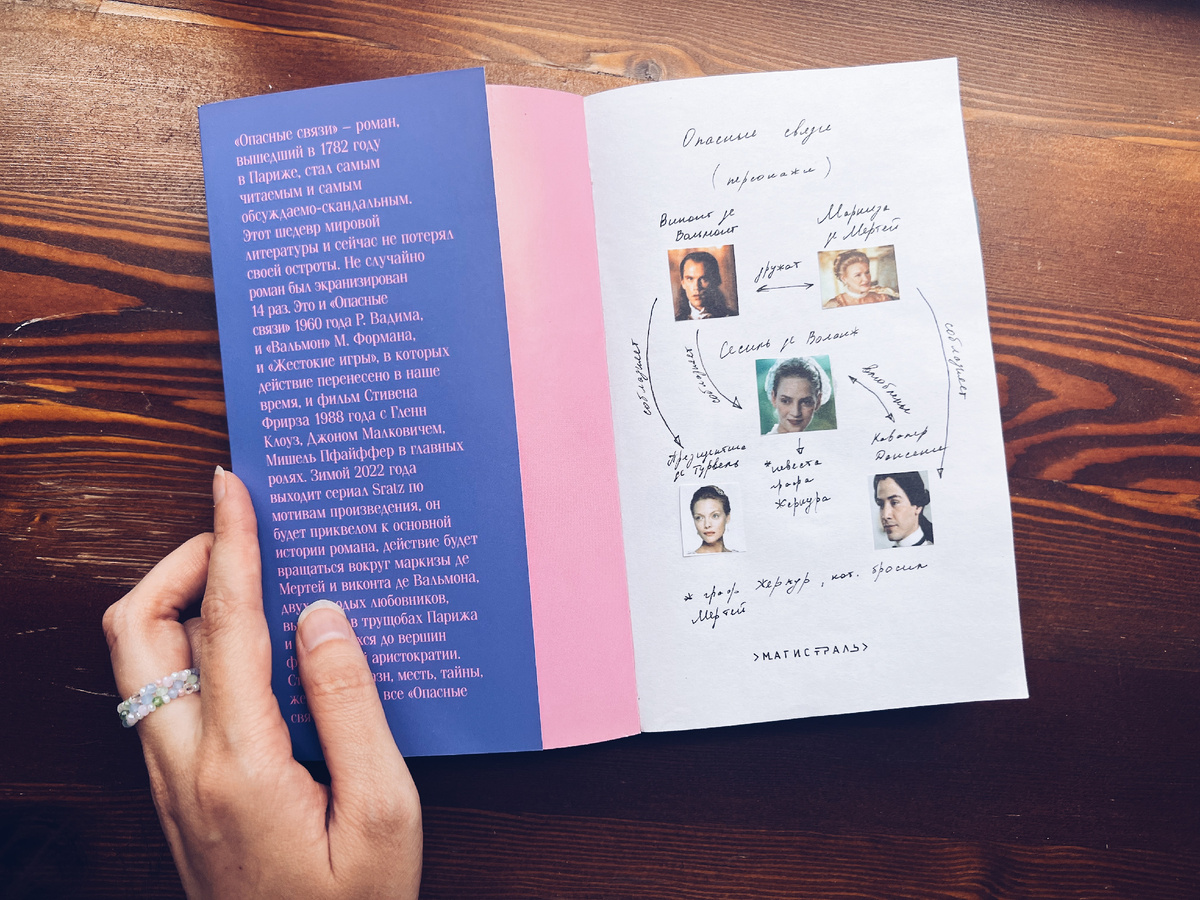 «Опасные связи» – роман,
вышедший в 1782 году
в Париже, стал самым
читаемым и самым
обсуждаемо-скандальным.
Этот шедевр мировой
литературы и сейчас не потерял
своей остроты. Не случайно
роман был экранизирован
14 раз. Это и «Опасные
связи» 1960 года Р. Вадима,
и «Вальмон» М. Формана,
и «Жестокие игры», в которых
действие перенесено в наше
время, и фильм Стивена
Фрирза 1988 года с Гленн
Клоуз, Джоном Малковичем,
Мишель Пфайффер в главных
ролях. Зимой 2022 года
выходит сериал Sratz по
мотивам произведения, он
будет приквелом к основной
истории романа, действие будет
вращаться вокруг маркизы де
Мертей и виконта де Вальмона,
любовников,
в трущобах Парижа
и до вершин
аристократии.
месть, тайны,
все «Опасные
Опасные связи
(персонажи)
Виконт де
Вальмонт
Маркиза
де Мертей
дружат
Сесиль де Воланж
соблазняет
соблазняет
влюблены
соблазняет
Президентша
де Турвель
*невеста
графа
Жеркура
Кавалер
Дансени
* граф Жеркур, кот. бросил
Мертей
>МАГИСТРАЛЬ>